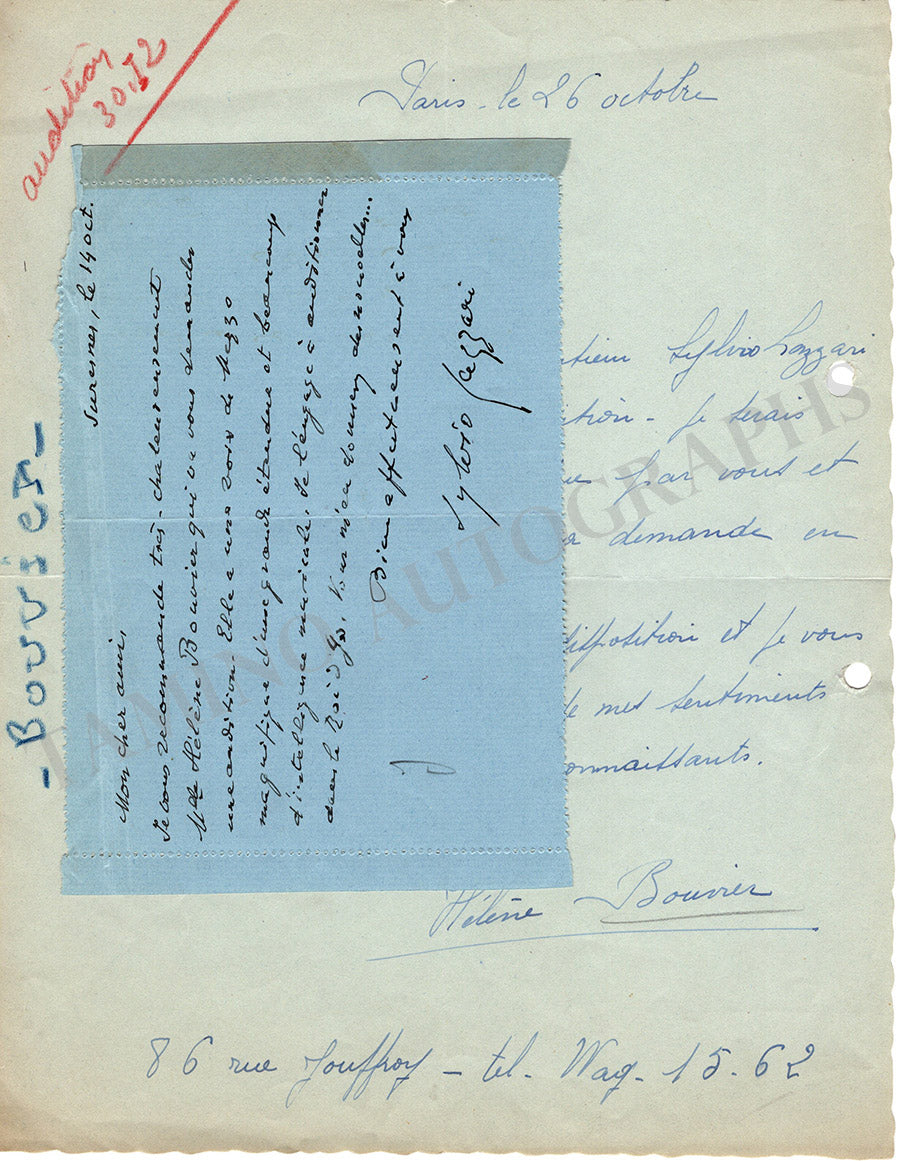 audition
30.12
Paris - le 26 octobre
Suresnes, le 14 oct.
Mon cher ami
Je vous recommande très-chaleureusement
Mlle Hélène Bouvier qui va vous demander
une audition. Elle a une voix de Mezzo
magnifique d'une grande étendue et beaucoup
d'intelligence musicale. Je l'engage à auditionner
dans le Roi d'Ys. Vous m'en donnerez des nouvelles...
Bien affectueusement à vous
Sylvio Lazzari
- BOUVIER -
Sylvio Lazzari
je serais
par vous et
demande en
disposition et je vous
de mes sentiments
Hélène Bouvier
86 rue Jouffroy - tel. Wag. 15.62
TAMINO AUTOGRAPHS